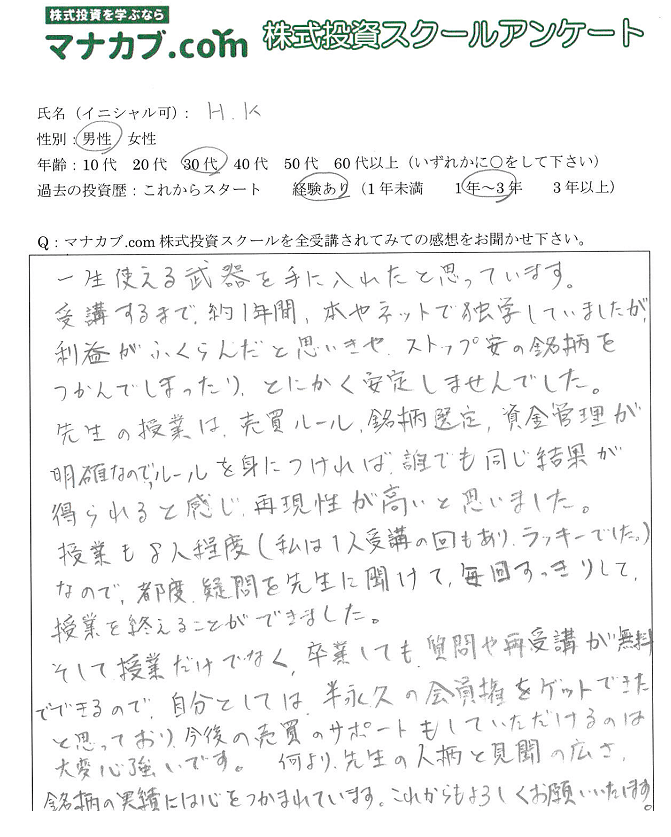 株式投資を学ぶなら
マナカブ.com 株式投資スクールアンケート
氏名（イニシャル可）： H.K
性別：男性 女性
年齢：10代 20代 30代 40代 50代 60代以上（いずれかに〇をして下さい）
過去の投資歴：これからスタート 経験あり（1年未満 1年～3年 3年以上）
Q：マナカブ.com 株式投資スクールを全受講されてみての感想をお聞かせ下さい。
一生使える武器を手に入れたと思っています。
受講するまで、約1年間、本やネットで独学していましたが、
利益がふくらんだと思いきや、ストップ安の銘柄を
つかんでしまったり、とにかく安定しませんでした。
先生の授業は、売買ルール、銘柄選定、資金管理が
明確なので、ルールを身につければ、誰でも同じ結果が
得られると感じ、再現性が高いと思いました。
授業も8人程度（私は1人受講の回もあり、ラッキーでした。）
なので、都度、疑問を先生に聞けて、毎回すっきりして、
授業を終えることができました。
そして授業だけでなく、卒業しても、質問や再受講が無料
でできるので、自分としては、半永久の会員権をゲットできた
と思っており、今後の売買のサポートもしていただけるのは
大変心強いです。 何より、先生の人柄と見聞の広さ、
銘柄の実績には心をつかまれています。これからもよろしくお願いいたします。